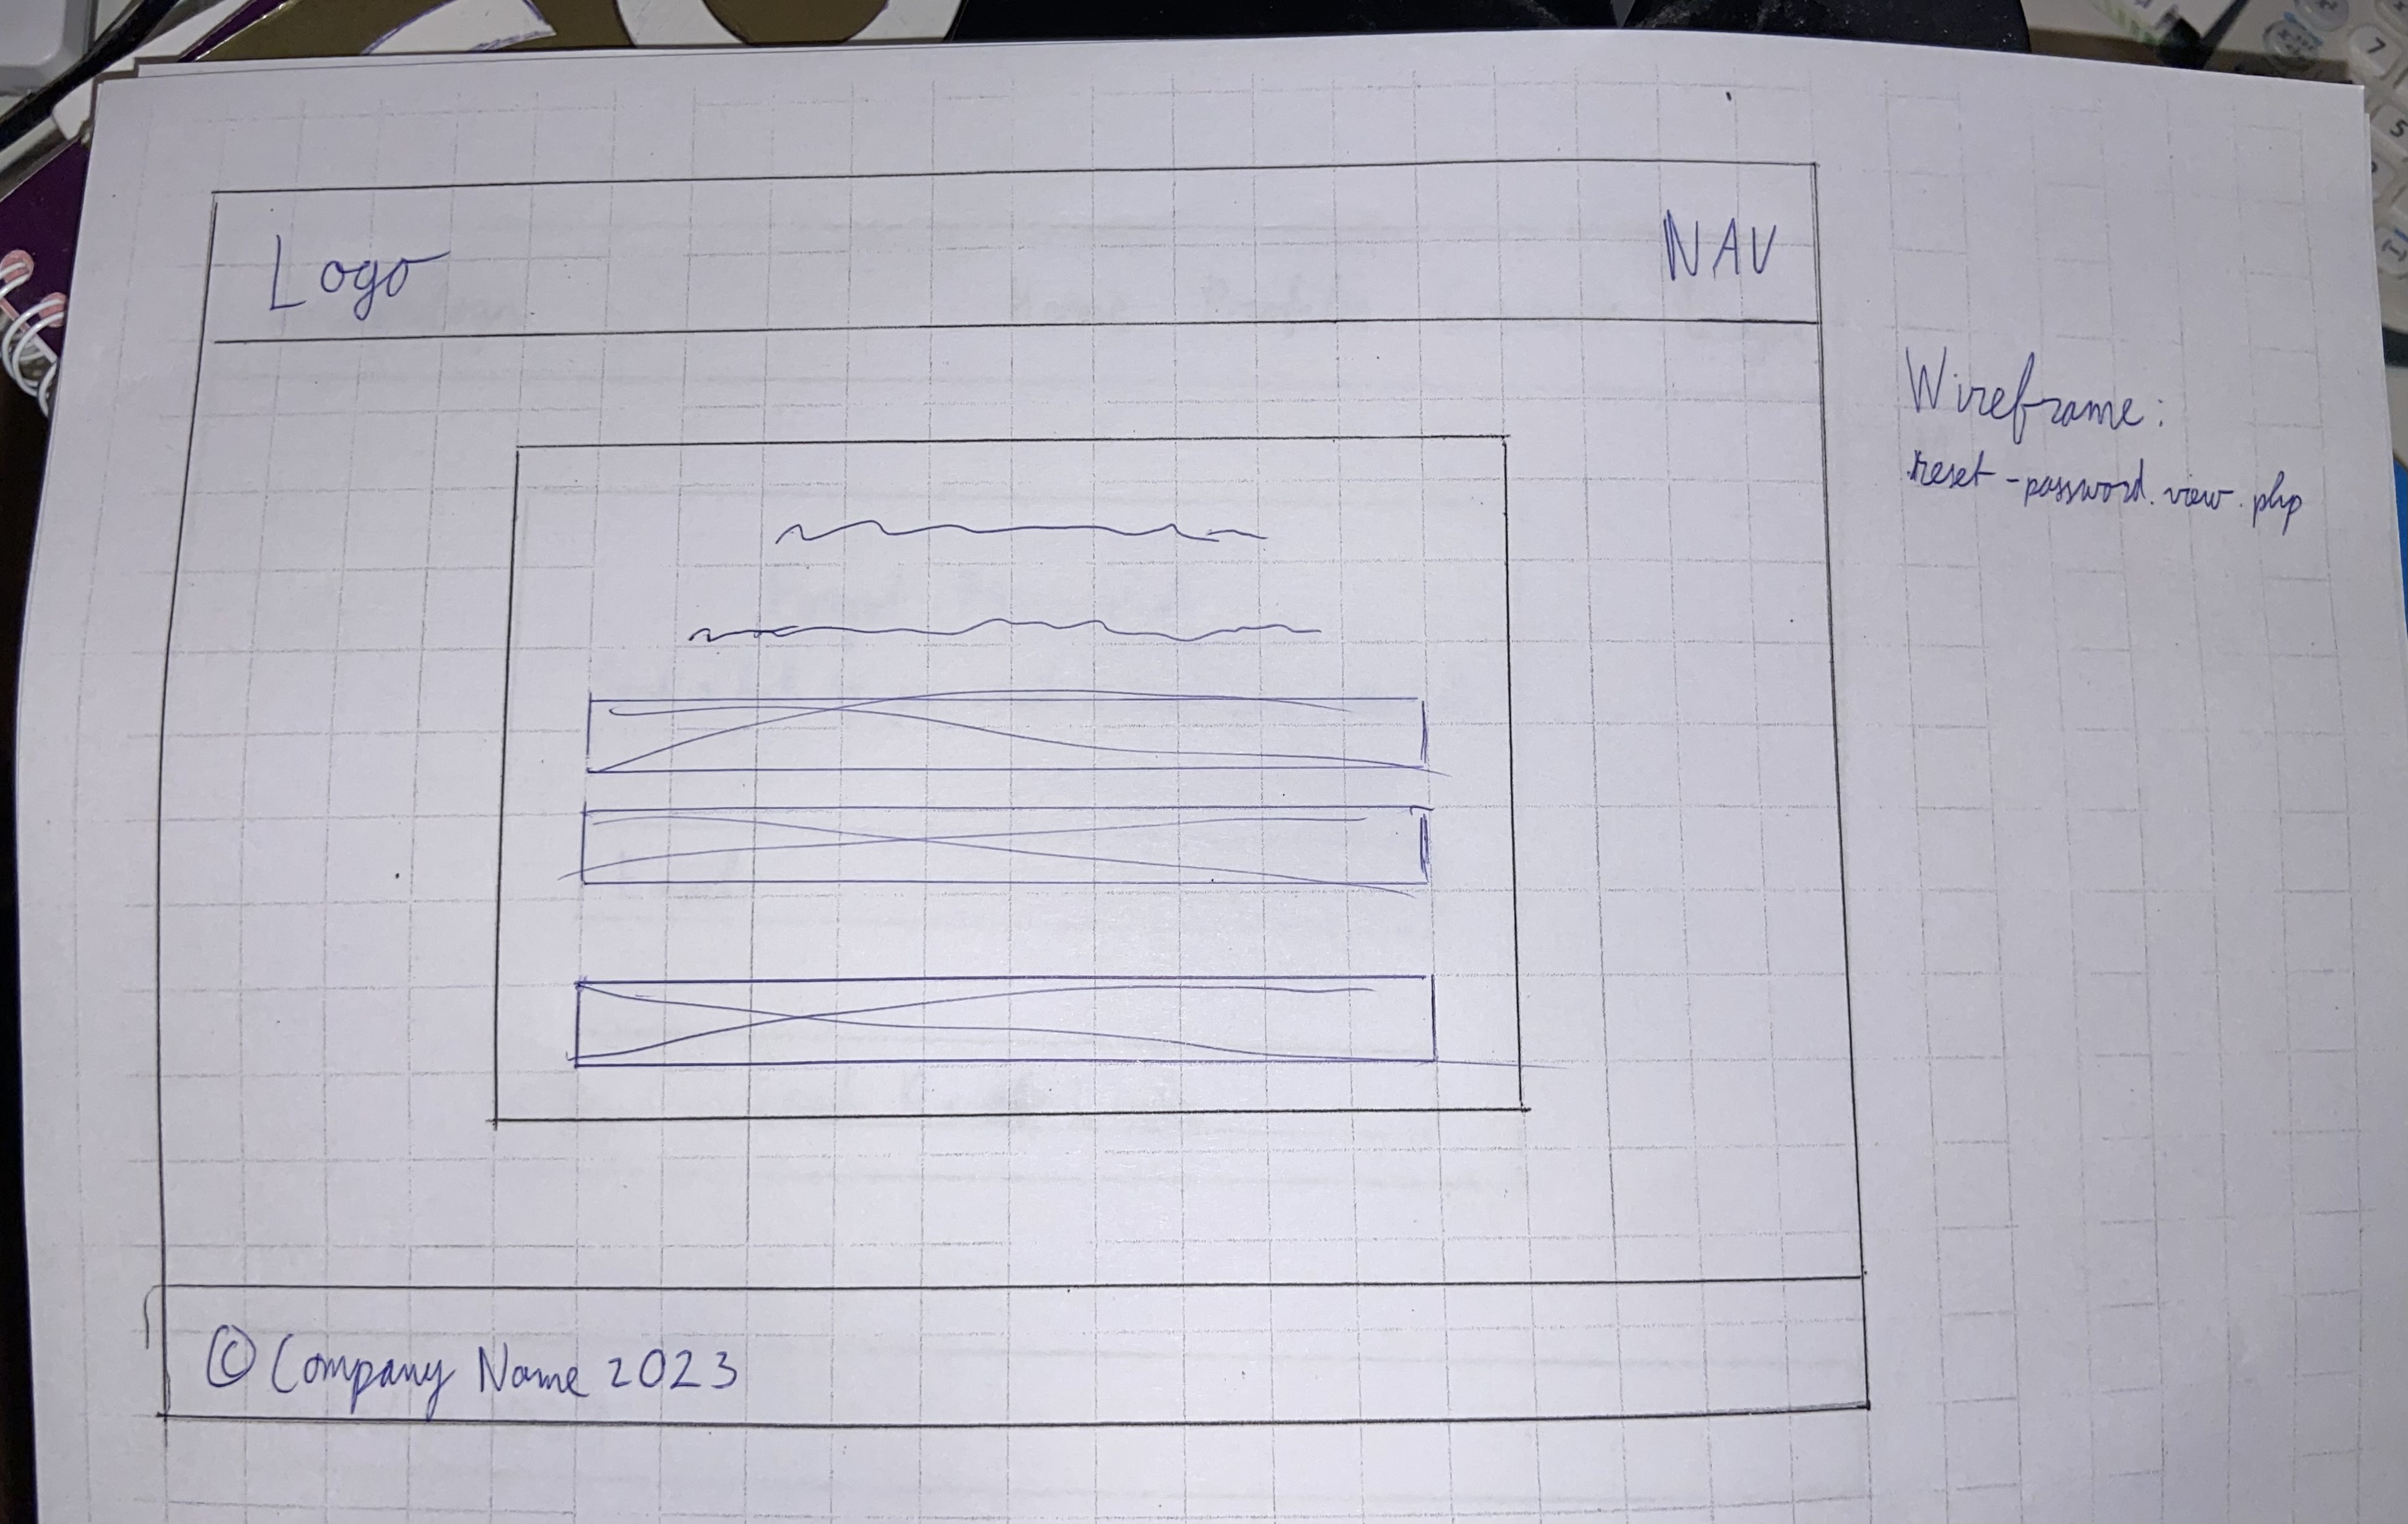 Logo
NAV
Wireframe:
reset-password.view.php
© Company Name 2023
7
5